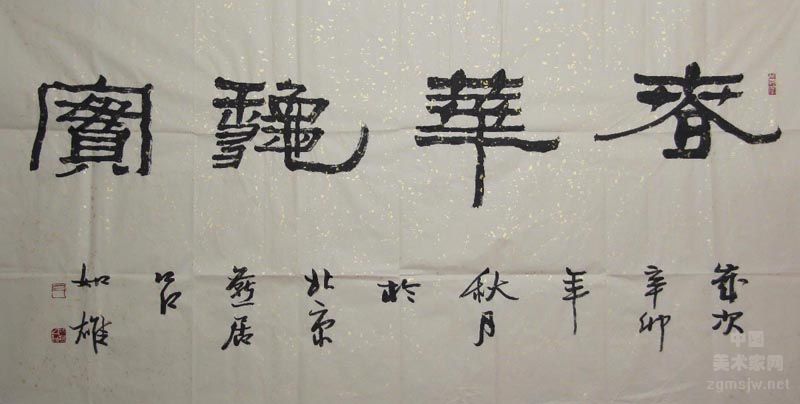 春華龝實
歲次
辛卯
年
秋月
於
北京
燕居
呂
如雄
中国
美术家网
zgmsjw.net